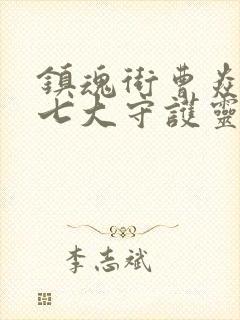 鎮魂街曹焱
七大守護靈
李志斌